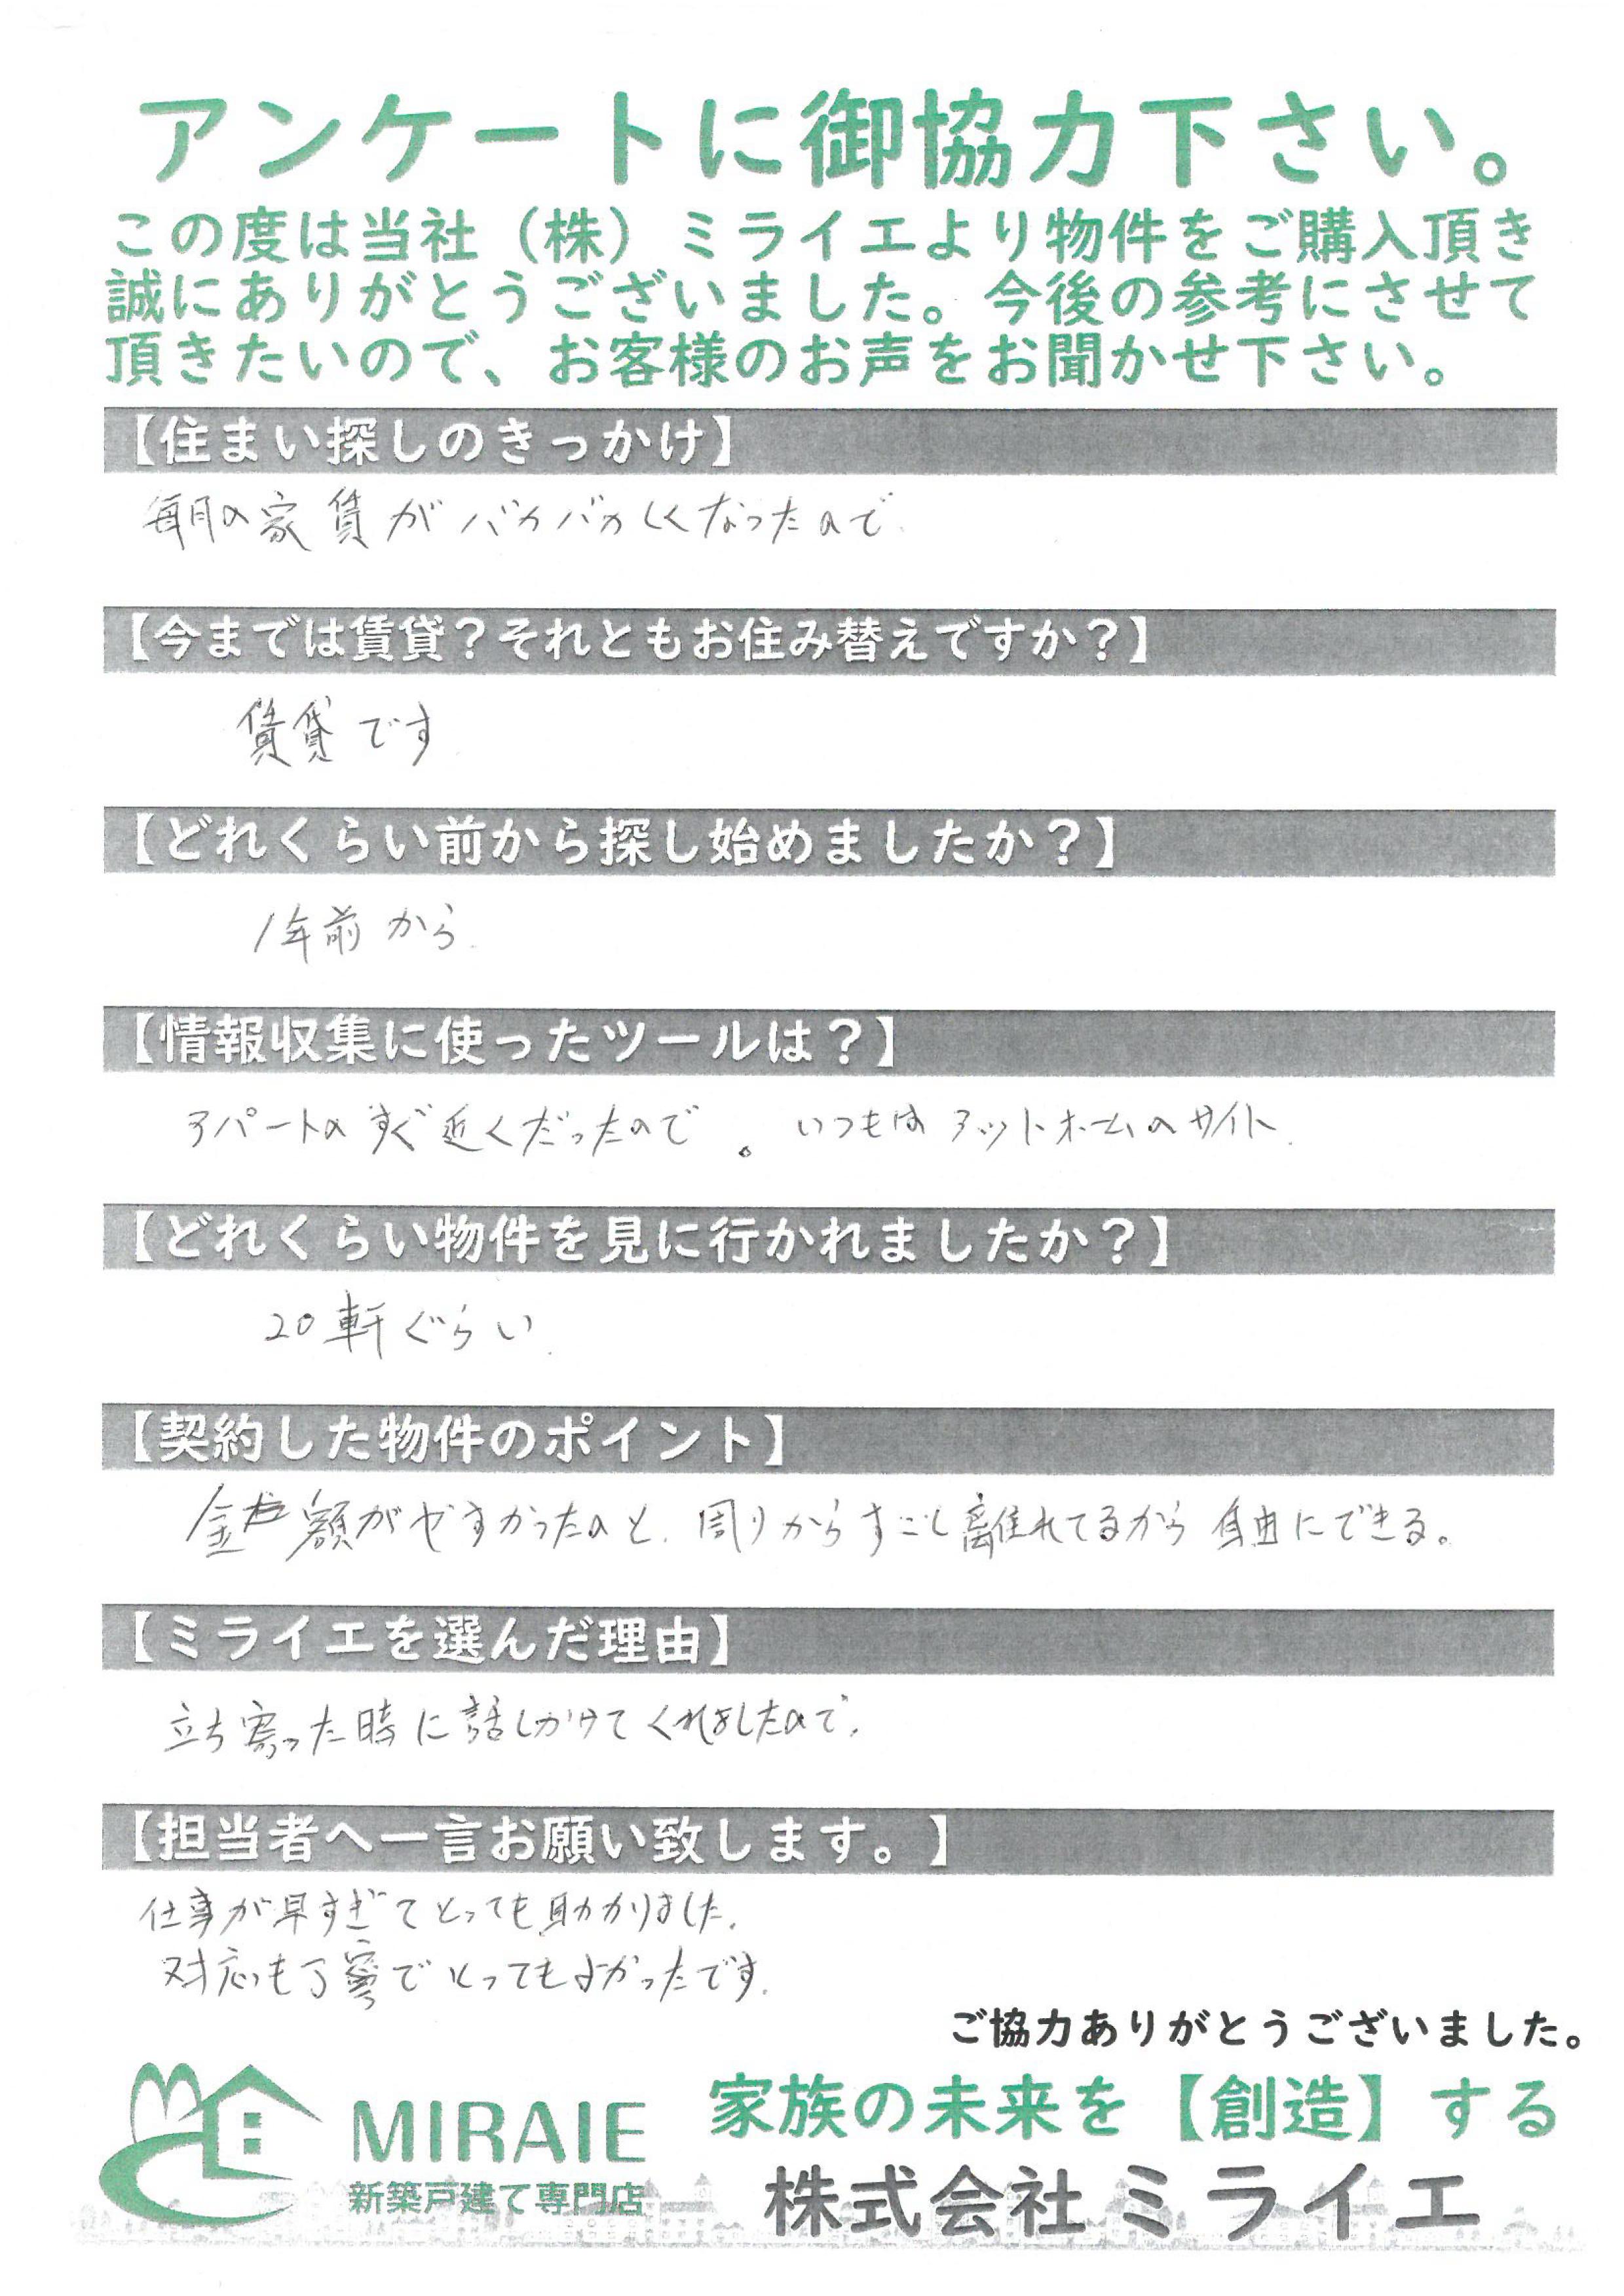 アンケートに御協力下さい。
この度は当社（株）ミライエより物件をご購入頂き
誠にありがとうございました。今後の参考にさせて
頂きたいので、お客様のお声をお聞かせ下さい。
【住まい探しのきっかけ】
毎月の家賃がバカバカしくなったので.
【今までは賃貸？それともお住み替えですか？】
賃貸です
【どれくらい前から探し始めましたか？】
1年前から.
【情報収集に使ったツールは？】
アパートのすぐ近くだったので。いつもは アットホームのサイト.
【どれくらい物件を見に行かれましたか？】
20軒ぐらい.
【契約した物件のポイント】
金額がやすかったのと、周りからすこし離れてるから自由にできる。
【ミライエを選んだ理由】
立ち寄った時に話しかけてくれましたので.
【担当者へ一言お願い致します。】
仕事が早すぎてとっても助かりました.
対応も丁寧でとってもよかったです.
ご協力ありがとうございました。
家族の未来を【創造】する
MIRAIE
新築戸建て専門店
株式会社ミライエ